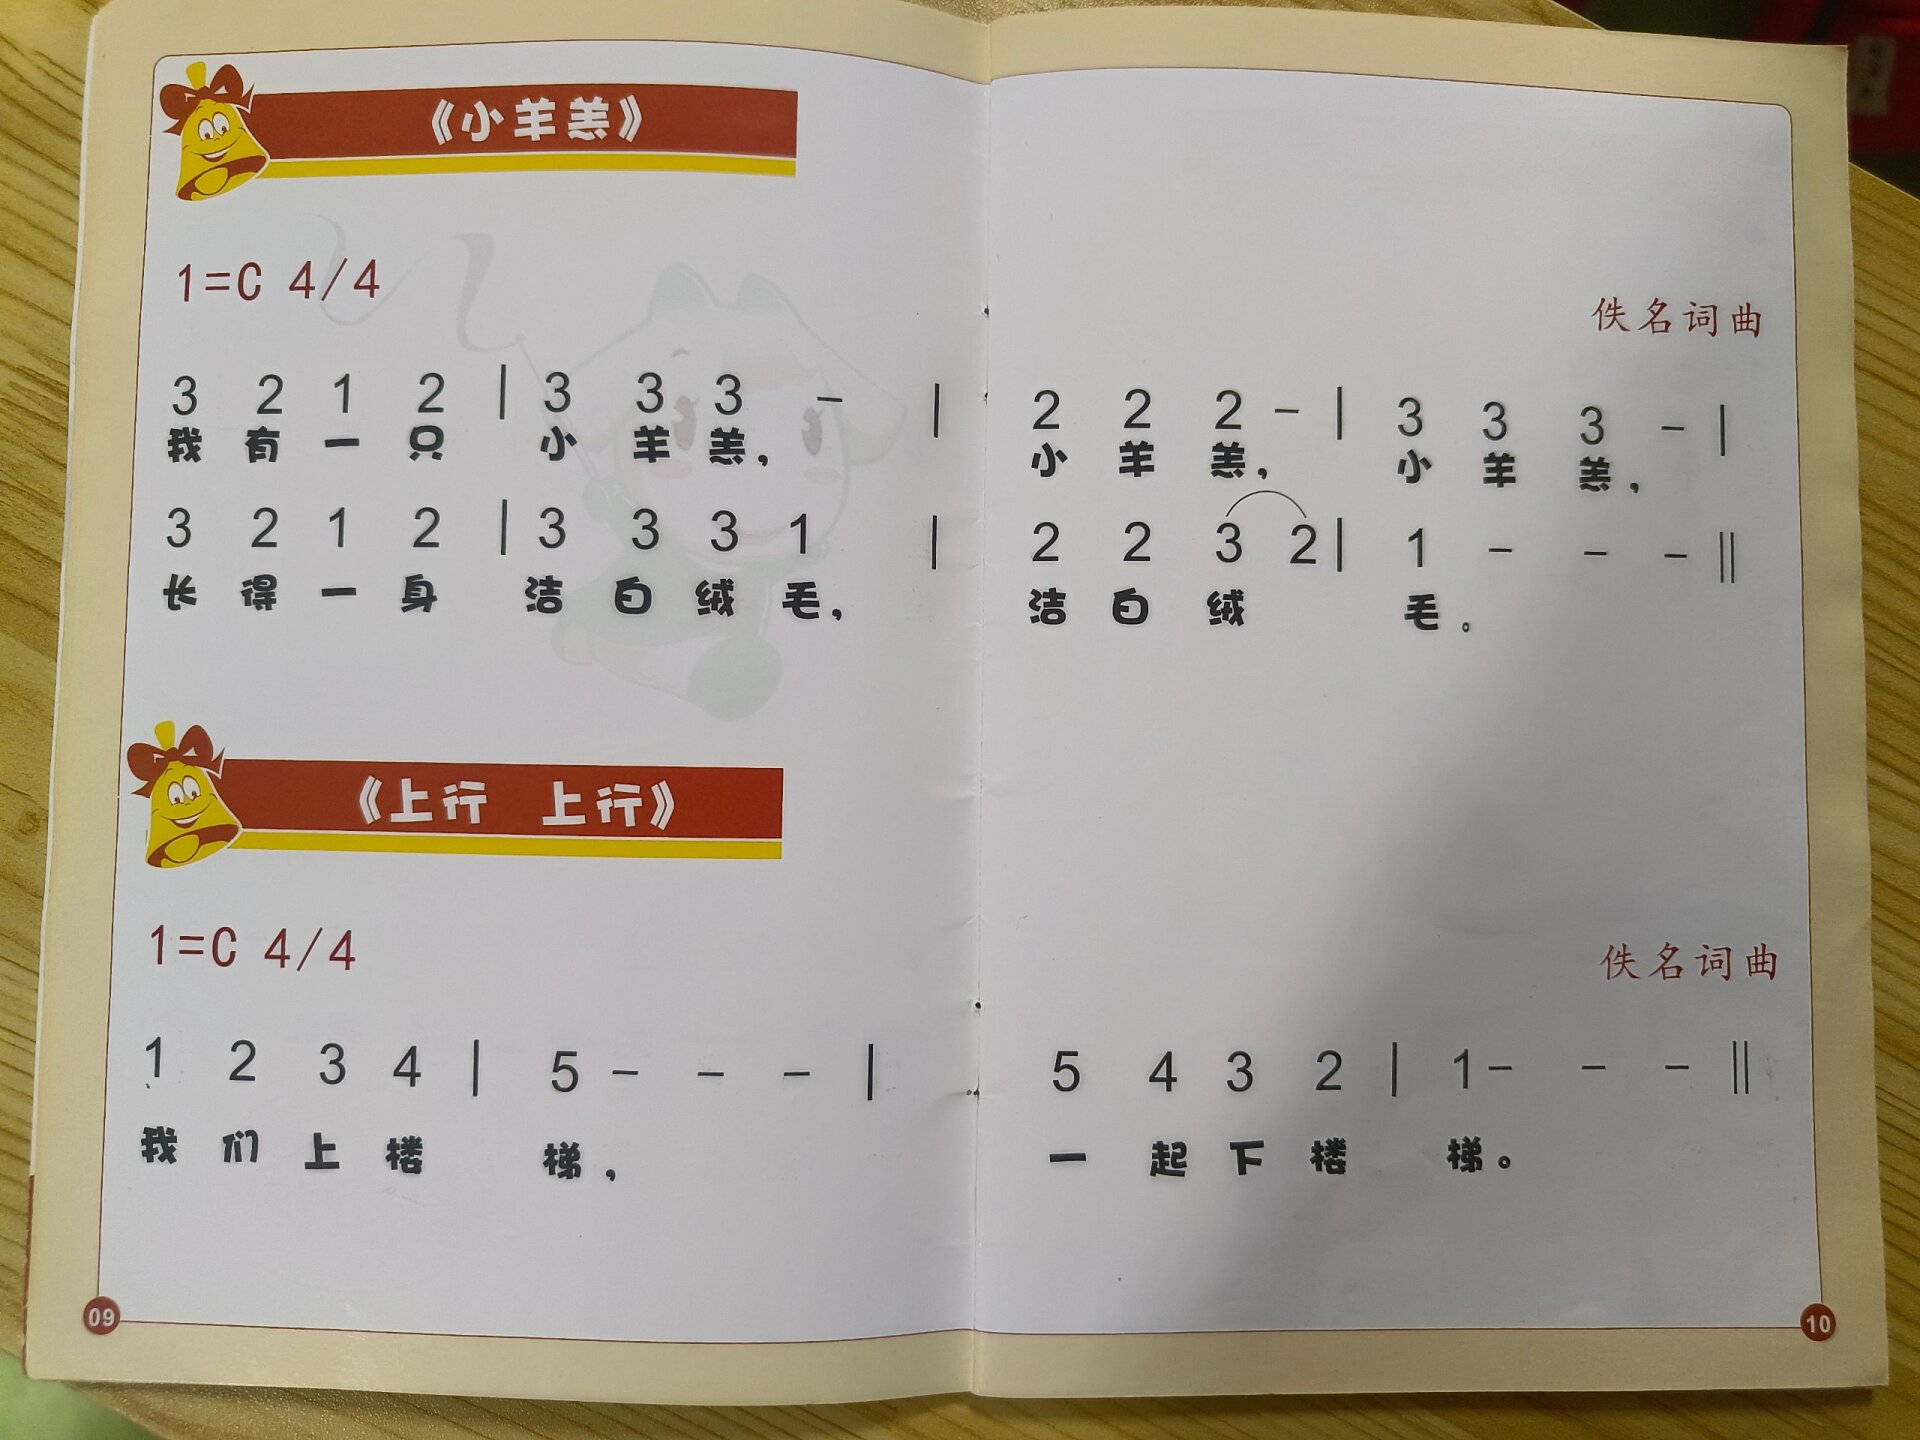 《小羊羔》
1=C 4/4
佚名词曲
3 2 1 2 | 3 3 3 - | 2 2 2 - | 3 3 3 - |
我 有 一 只 小 羊 羔， 小 羊 羔， 小 羊 羔，
3 2 1 2 | 3 3 3 1 | 2 2 3 2 | 1 - - - ||
长 得 一 身 洁 白 绒 毛， 洁 白 绒 毛。
《上行 上行》
1=C 4/4
佚名词曲
1 2 3 4 | 5 - - - | 5 4 3 2 | 1 - - - ||
我 们 上 楼 梯， 一 起 下 楼 梯。
09
10